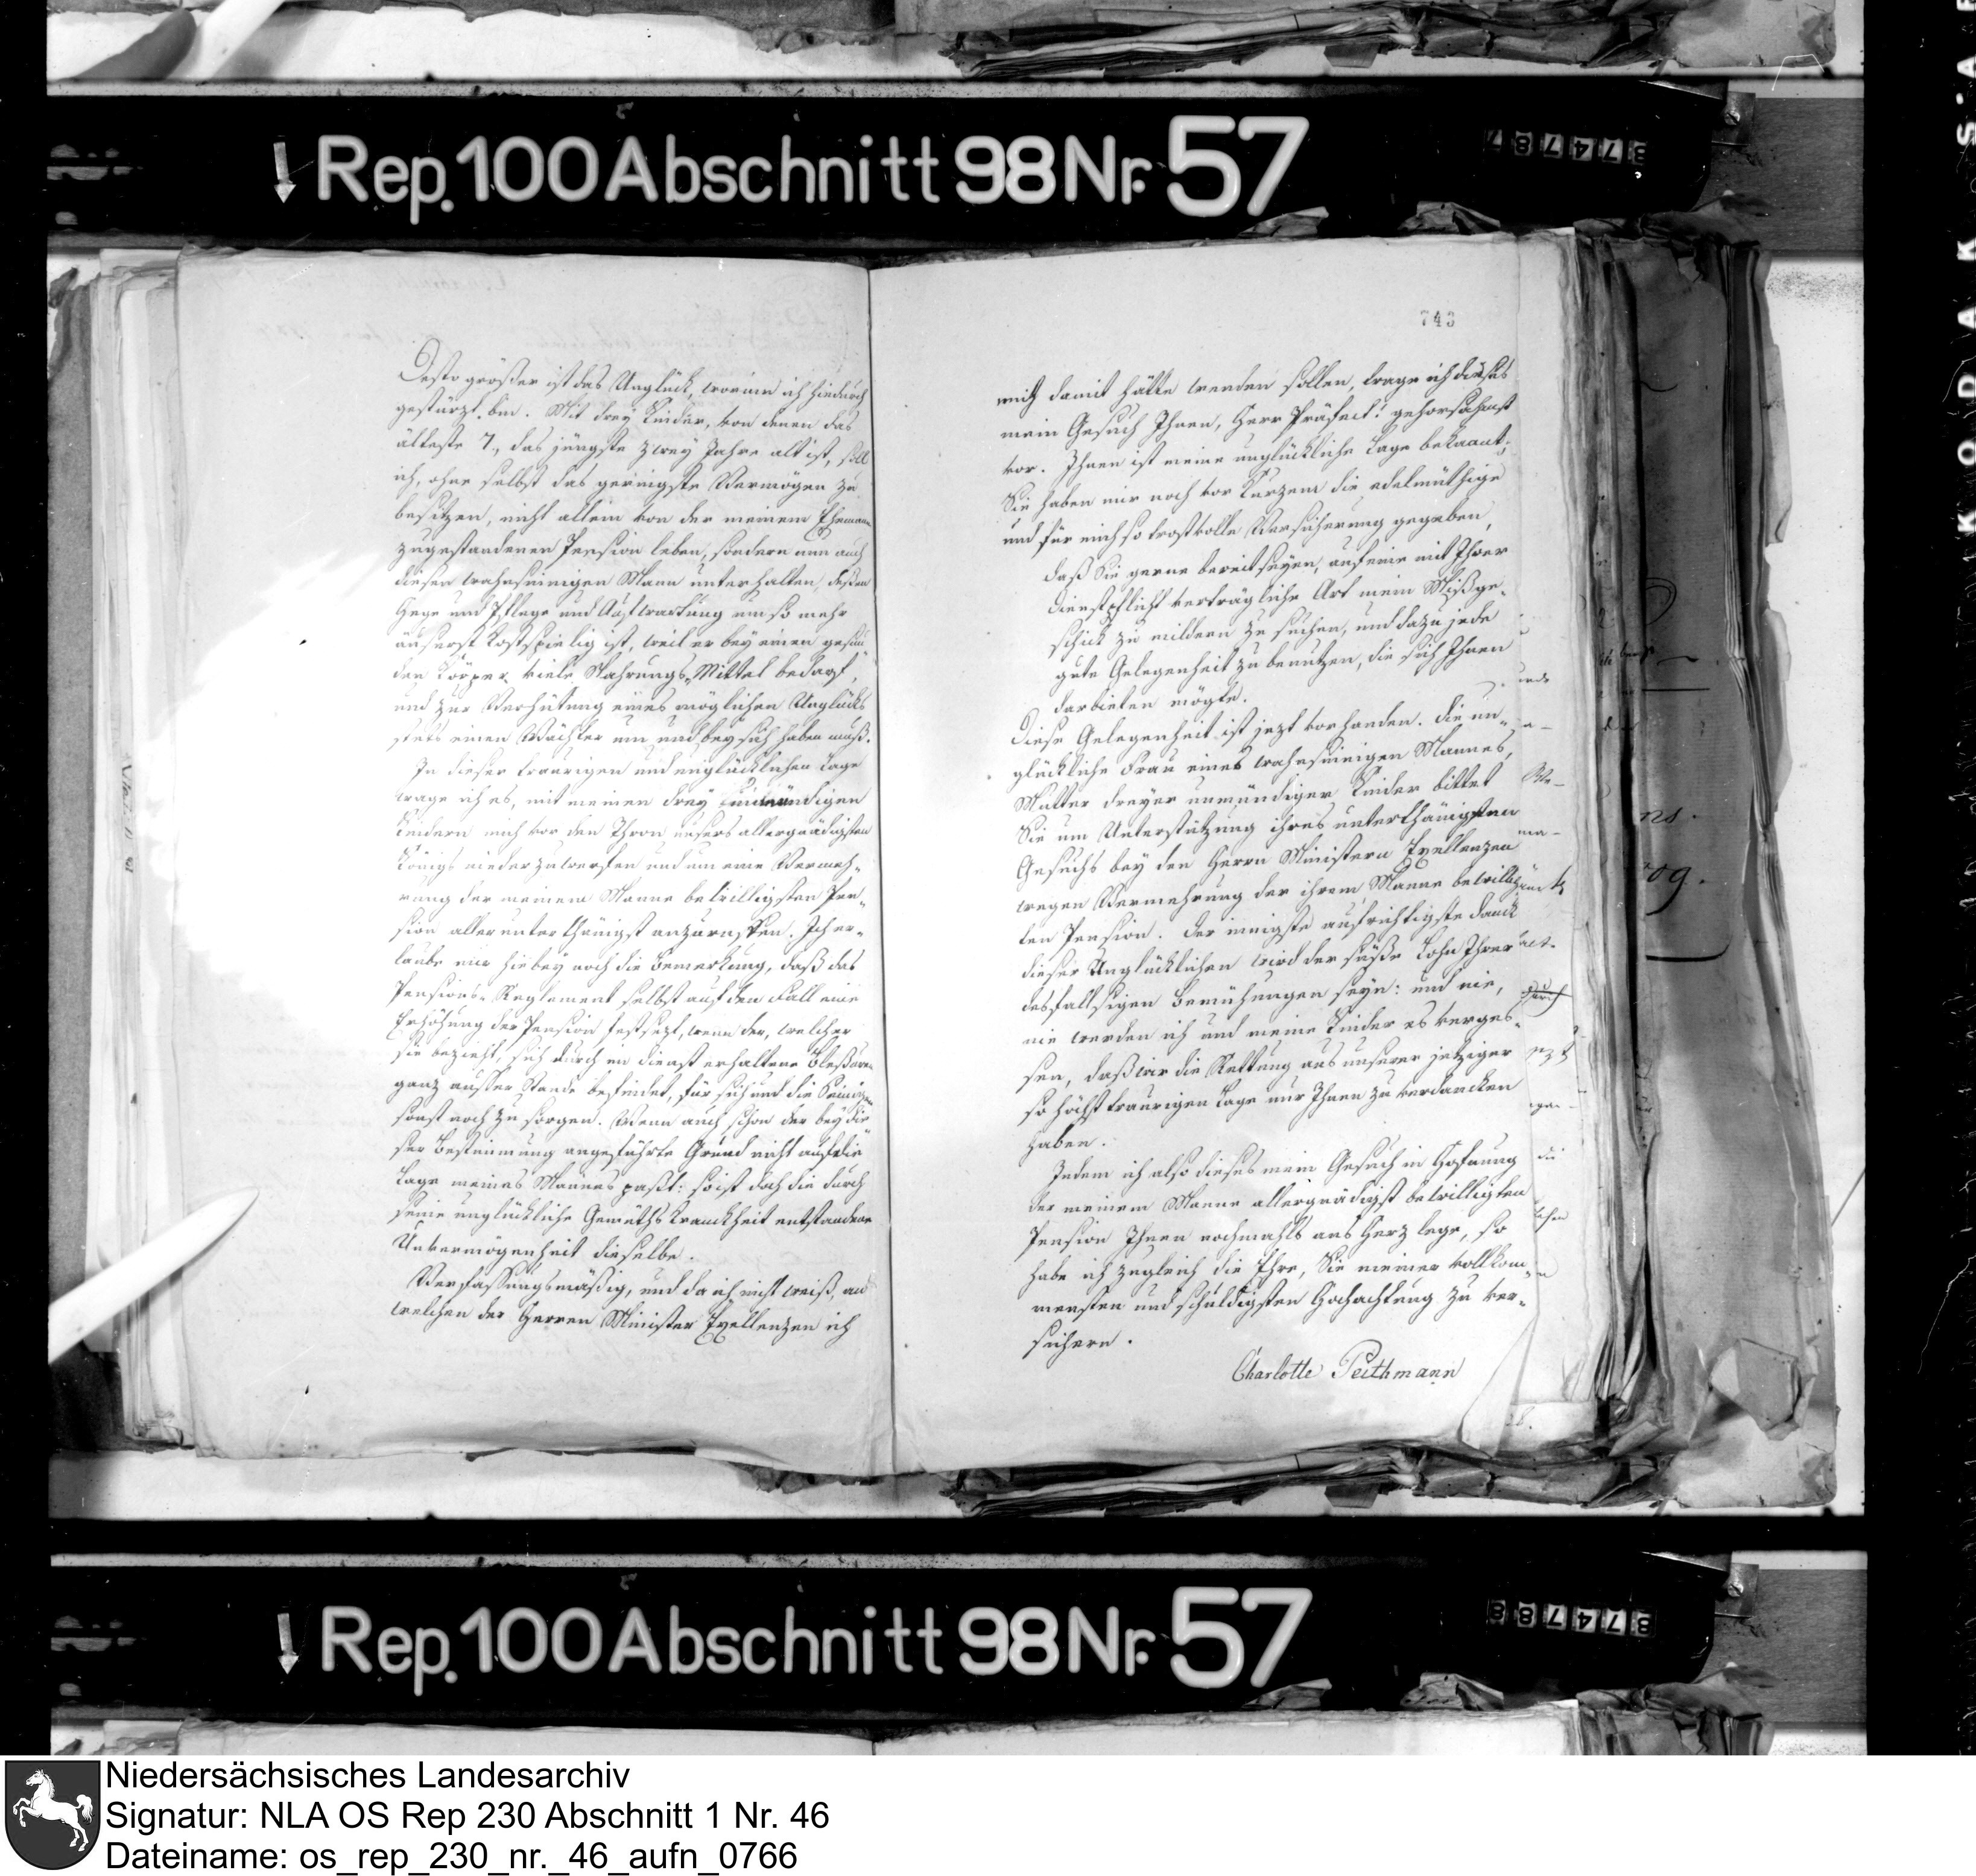 Rep. 100 Abschnitt 98 Nr. 57
374787
743
Desto größer ist das Unglück, worinn ich hiedurch
gestürzt bin. Mit drey Kinder, von denen das
älteste 7, das jüngste zwey Jahre alt ist, soll
ich, ohne selbst das geringste Vermögen zu
besitzen, nicht allein von der meinem Ehemann
zugestandenen Pension leben, sondern nun auch
diesen wahnsinnigen Mann unterhalten, deßen
Hege und Pflege und Aufwartung um so mehr
äuserst kostspielig ist, weil er bey einem gesun-
den Körper viele Nahrungs-Mittel bedarf,
und zur Verhütung eines möglichen Unglücks
stets einen Wächter um und bey sich haben muß.
In dieser traurigen und unglücklichen Lage
wage ich es, mit meinen drey unmündigen
Kindern mich vor den Thron unsers allergnädigsten
Königs niederzuwerfen und um eine Vermeh-
rung der meinem Manne bewilligten Pen-
sion allerunterthänigst anzurufen. Ich er-
laube mir hiebey noch die Bemerkung, daß das
Pensions-Reglement selbst auf den Fall eine
Erhöhung der Pension festsezt, wenn der, welcher
sie bezieht, sich durch im Dienst erhaltene Bleßuren
ganz ausser Stande befindet, für sich und die Seinigen
sonst noch zu sorgen. Wenn auch schon der bey die-
ser Bestimmung angeführte Grund nicht auf die
Lage meines Mannes paßt: so ist doch die durch
seine unglückliche Gemüthskranckheit entstandene
Unvermögenheit dieselbe.
Verfassungsmäßig, und da ich nicht weiß, an
welchen der Herren Minister Exellenzen ich
mich damit hätte wenden sollen, trage ich dieses
mein Gesuch Ihnen, Herr Präfect! gehorsahmst
vor. Ihnen ist meine unglückliche Lage bekannt;
Sie haben mir noch vor Kurzem die edelmüthige
und für mich so trostvolle Versicherung gegeben,
daß Sie gerne bereit seyen, auf eine mit Ihrer
Dienstpflicht verträgliche Art mein Mißge-
schick zu mildern zu suchen, und dazu jede
gute Gelegenheit zu benutzen, die sich Ihnen
darbieten mögte.
Diese Gelegenheit ist jezt vorhanden. Die un-
glückliche Frau eines wahnsinnigen Mannes,
Mutter dreyer unmündiger Kinder bittet
Sie um Unterstützung ihres unterthänigsten
Gesuchs bey den Herrn Ministern Exellenzen
wegen Vermehrung der ihrem Manne bewillig-
ten Pension. Der innigste aufrichtigste Danck
dieser Unglücklichen wird der süße Lohn Ihrer
desfallsigen Bemühungen seyn: und nie,
nie werden ich und meine Kinder es verges-
sen, daß wir die Rettung aus unserer jetziger
so höchst traurigen Lage nur Ihnen zu verdancken
haben.
Indem ich also dieses mein Gesuch in Hofnung
der meinem Manne allergnädigst bewilligten
Pension Ihnen nochmahls ans Herz lege, so
habe ich zugleich die Ehre, Sie meiner vollkom-
mensten und schuldigsten Hochachtung zu ver-
sichern.
Charlotte Peithmann
Rep. 100 Abschnitt 98 Nr. 57
374788
KODAK
Niedersächsisches Landesarchiv
Signatur: NLA OS Rep 230 Abschnitt 1 Nr. 46
Dateiname: os_rep_230_nr._46_aufn_0766